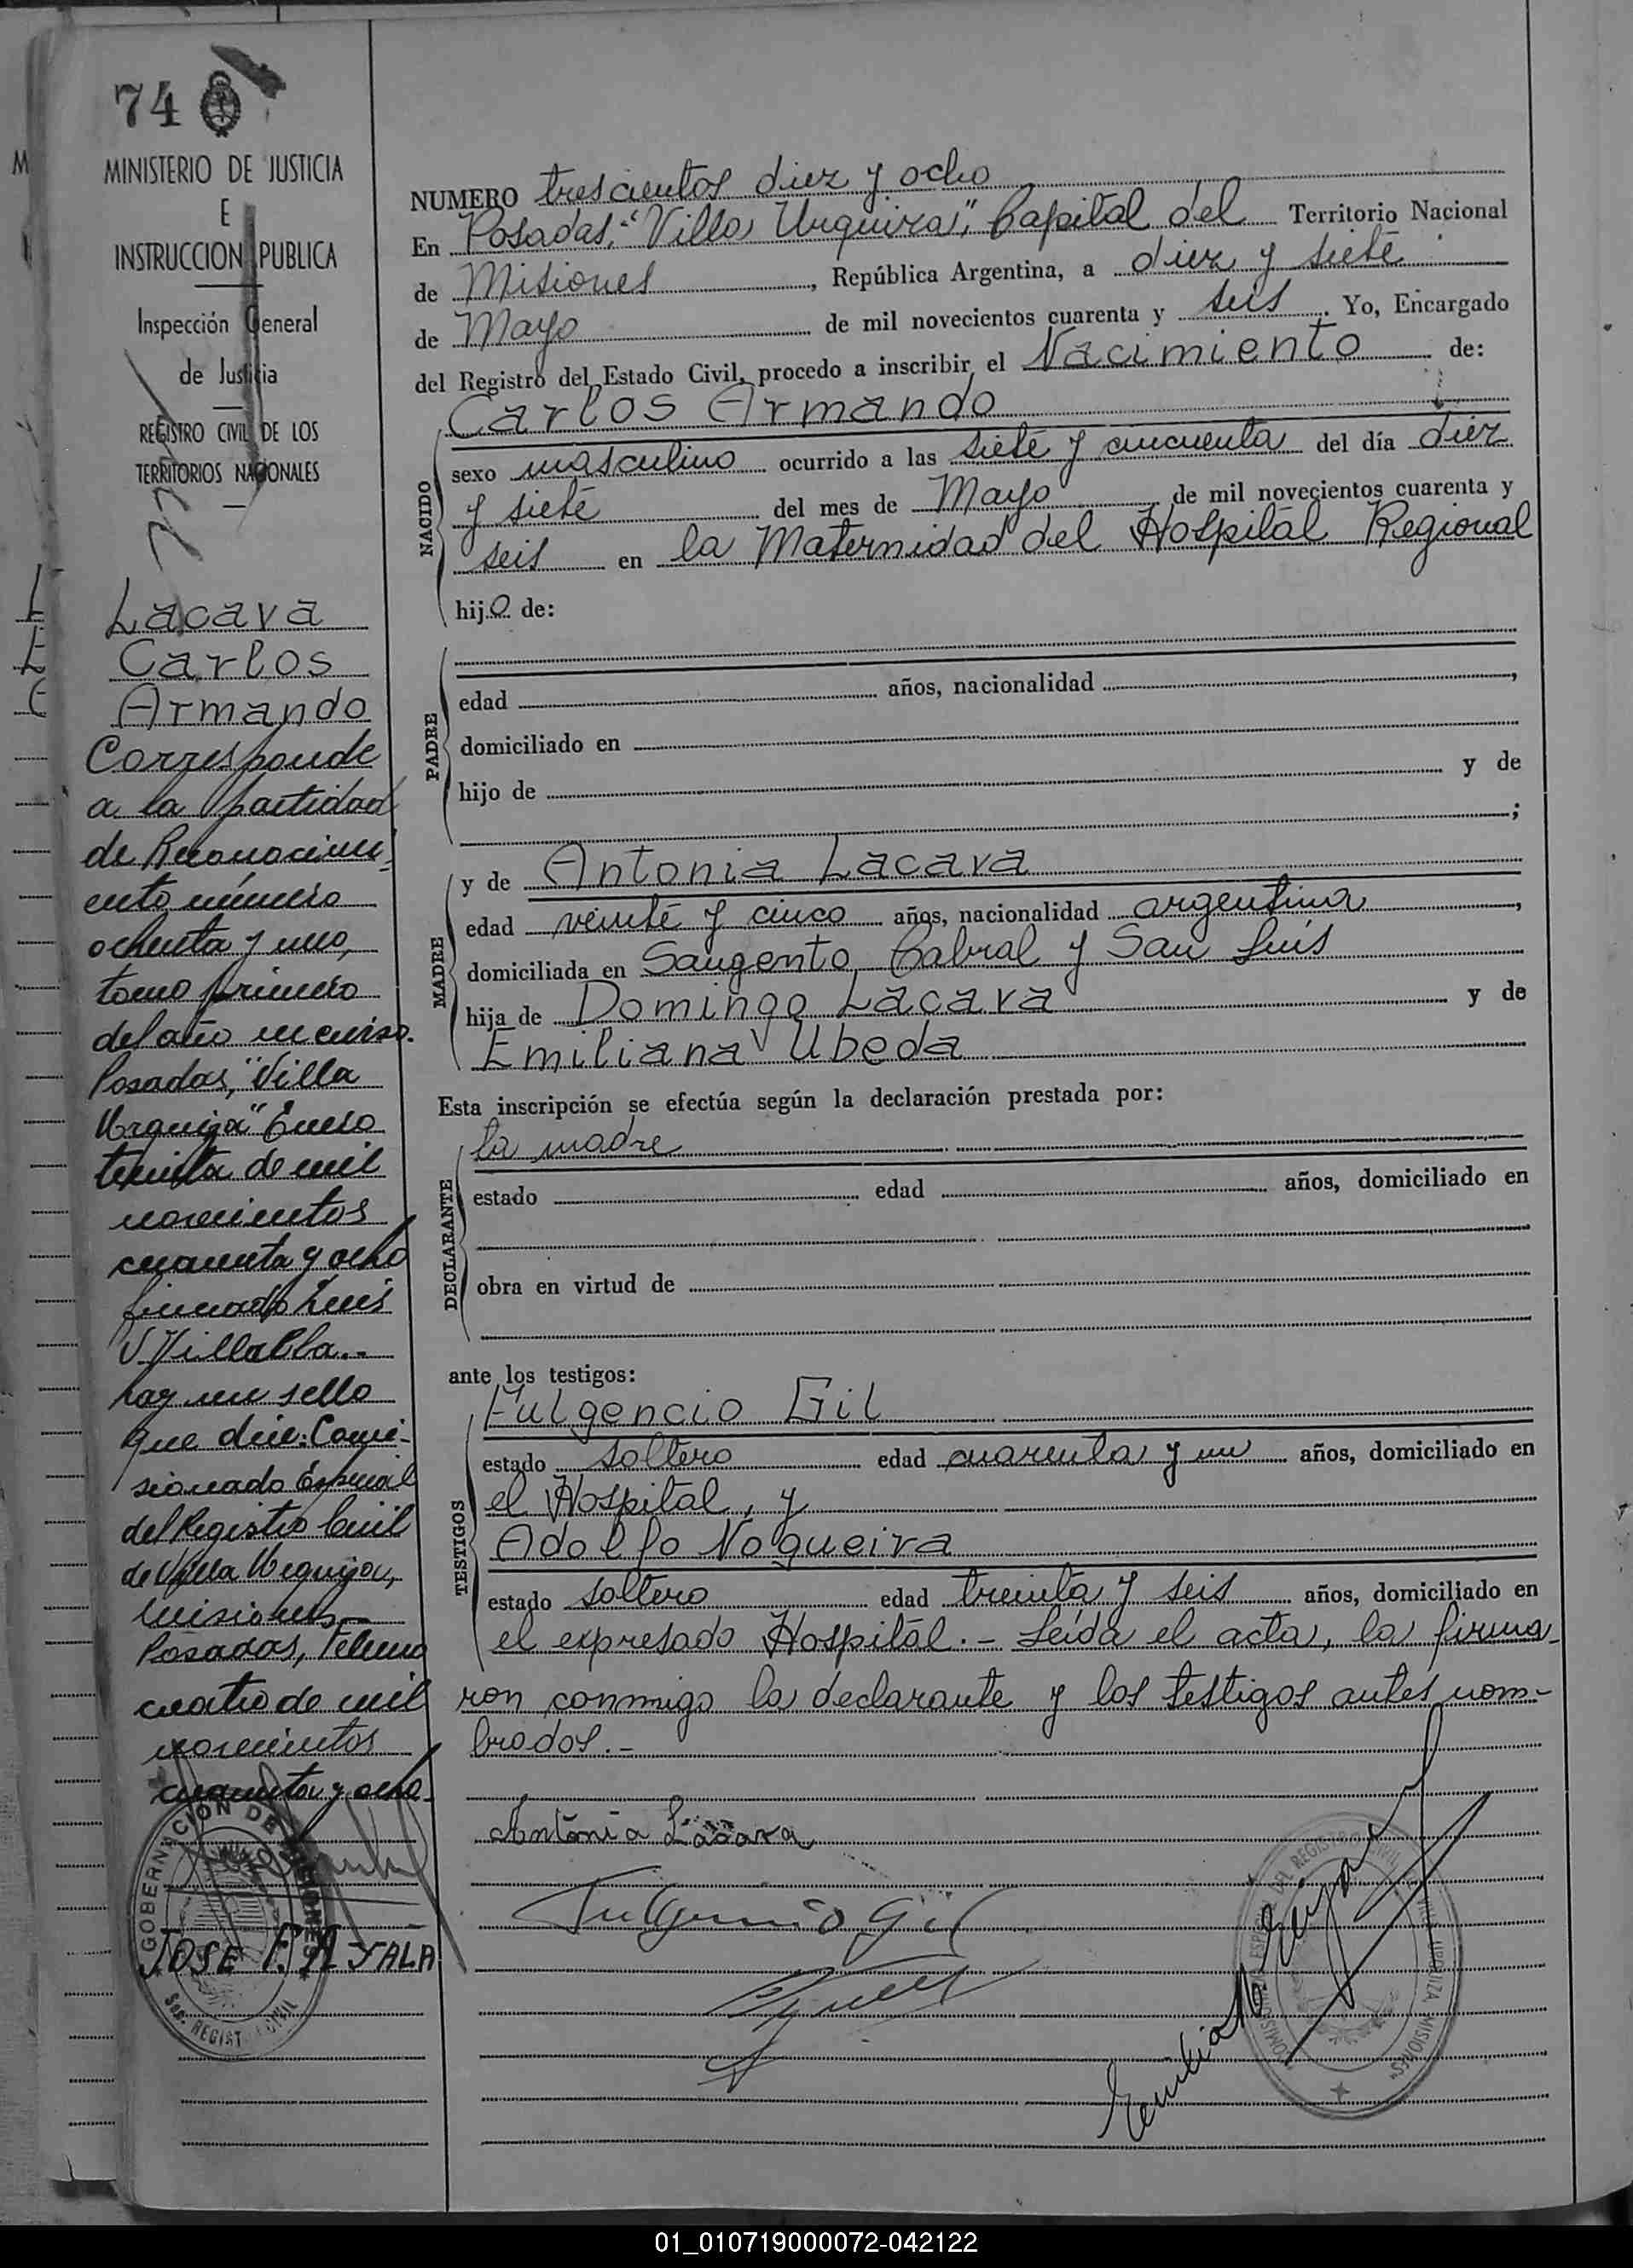 74
MINISTERIO DE JUSTICIA
E
INSTRUCCION PUBLICA
Inspección General
de Justicia
REGISTRO CIVIL DE LOS
TERRITORIOS NACIONALES
Lacava
Carlos
Armando
Corresponde
a la partidad
de Reconocimi-
ento número
ochenta y uno,
tomo primero
del año en curso.
Posadas, "Villa
Urquiza" Enero
treinta de mil
novecientos
cuarenta y ocho
firmado Luis
Villalba..
hay un sello
que dice: Comi-
sionado Especial
del Registro Civil
de Villa Urquiza,
Misiones.-
Posadas, Febrero
cuatro de mil
novecientos
cuarenta y ocho.
GOBERNACION DE MISIONES
JOSE F. AYALA
REGIST CIVIL
NUMERO trescientos diez y ocho
En Posadas, "Villa Urquiza", Capital del Territorio Nacional
de Misiones, República Argentina, a diez y siete
de Mayo de mil novecientos cuarenta y seis. Yo, Encargado
del Registro del Estado Civil, procedo a inscribir el Nacimiento de:
NACIDO
Carlos Armando
sexo masculino ocurrido a las siete y cincuenta del día diez
y siete del mes de Mayo de mil novecientos cuarenta y
seis en la Maternidad del Hospital Regional
hijo de:
PADRE
edad años, nacionalidad ,
domiciliado en
hijo de y de
;
MADRE
y de Antonia Lacava
edad veinte y cinco años, nacionalidad argentina,
domiciliada en Sargento Cabral y San Luis
hija de Domingo Lacava y de
Emiliana Ubeda
Esta inscripción se efectúa según la declaración prestada por:
DECLARANTE
la madre
estado edad años, domiciliado en
obra en virtud de
ante los testigos:
TESTIGOS
Fulgencio Gil
estado soltero edad cuarenta y un años, domiciliado en
el Hospital, y
Adolfo Nogueira
estado soltero edad treinta y seis años, domiciliado en
el expresado Hospital.- Leída el acta, la firma-
ron conmigo la declarante y los testigos antes nom-
brados.-
Antonia Lacava
Fulgencio Gil
01_010719000072-042122